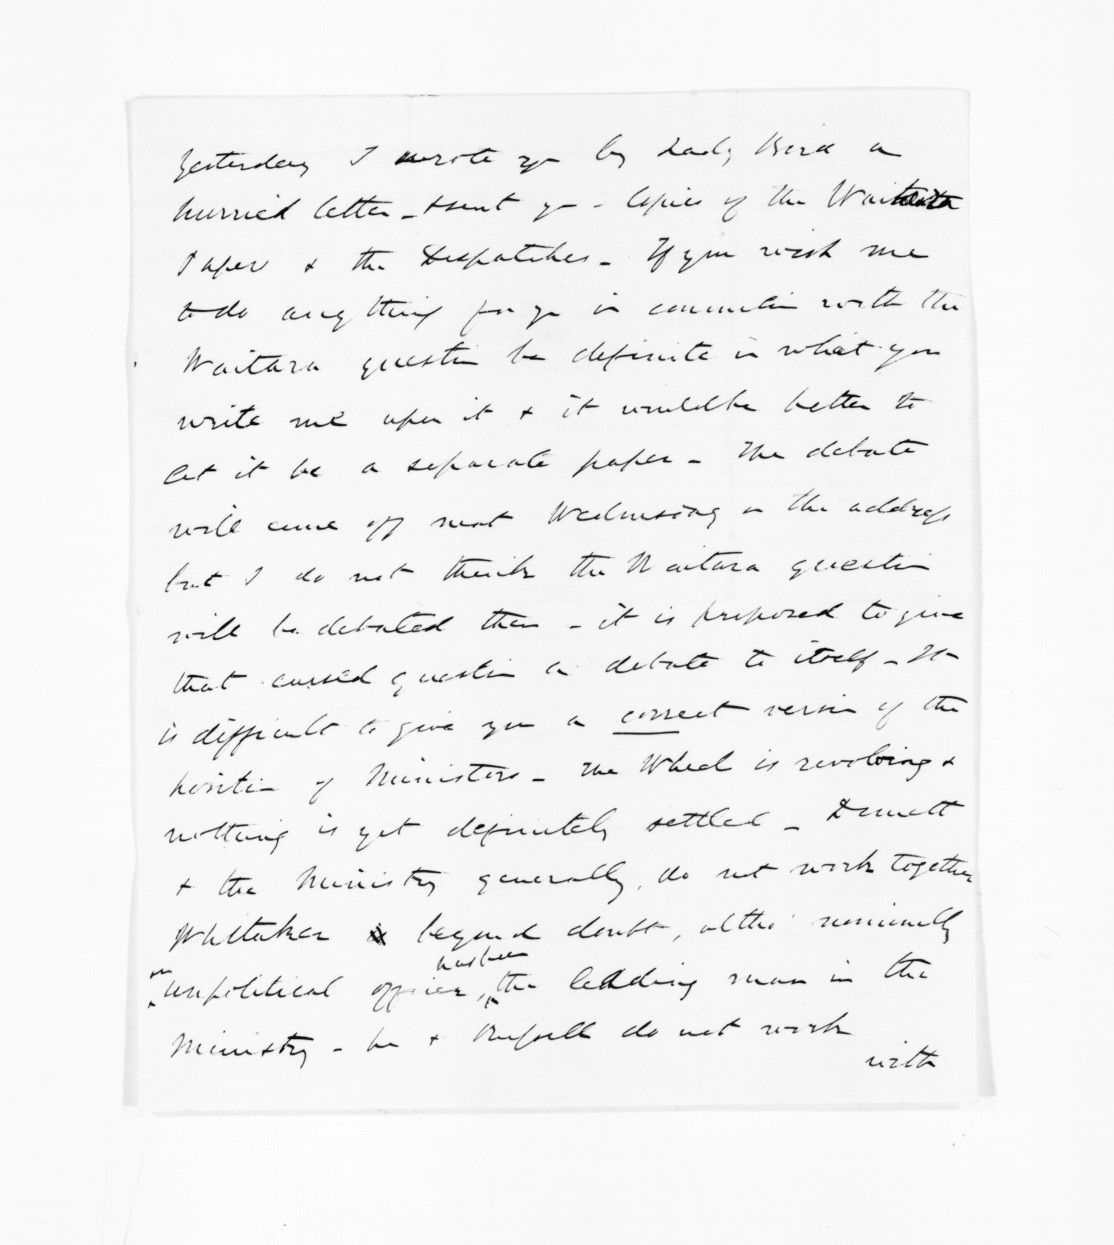 Yesterday I wrote yo by Lady Bird a
hurried letter - & sent yo - Copies of the Waitara
Paper & the Despatches - If you wish me
to do any thing for yo in connection with the
Waitara question be definite in what you
write me upon it & it would be better to
let it be a separate paper - The debate
will come off next Wednesday on the address
but I do not think the Waitara question
will be debated then - it is proposed to give
that cursed question a debate to itself - It
is difficult to give you a correct version of the
position of Ministers - The Wheel is revolving &
nothing is yet definitely settled - Domett
& the Ministry generally, do not work together
Whitaker beyond doubt, altho' nominally
has been
an unpolitical officer, the leading man in the
Ministry - he & Russell do not work
with